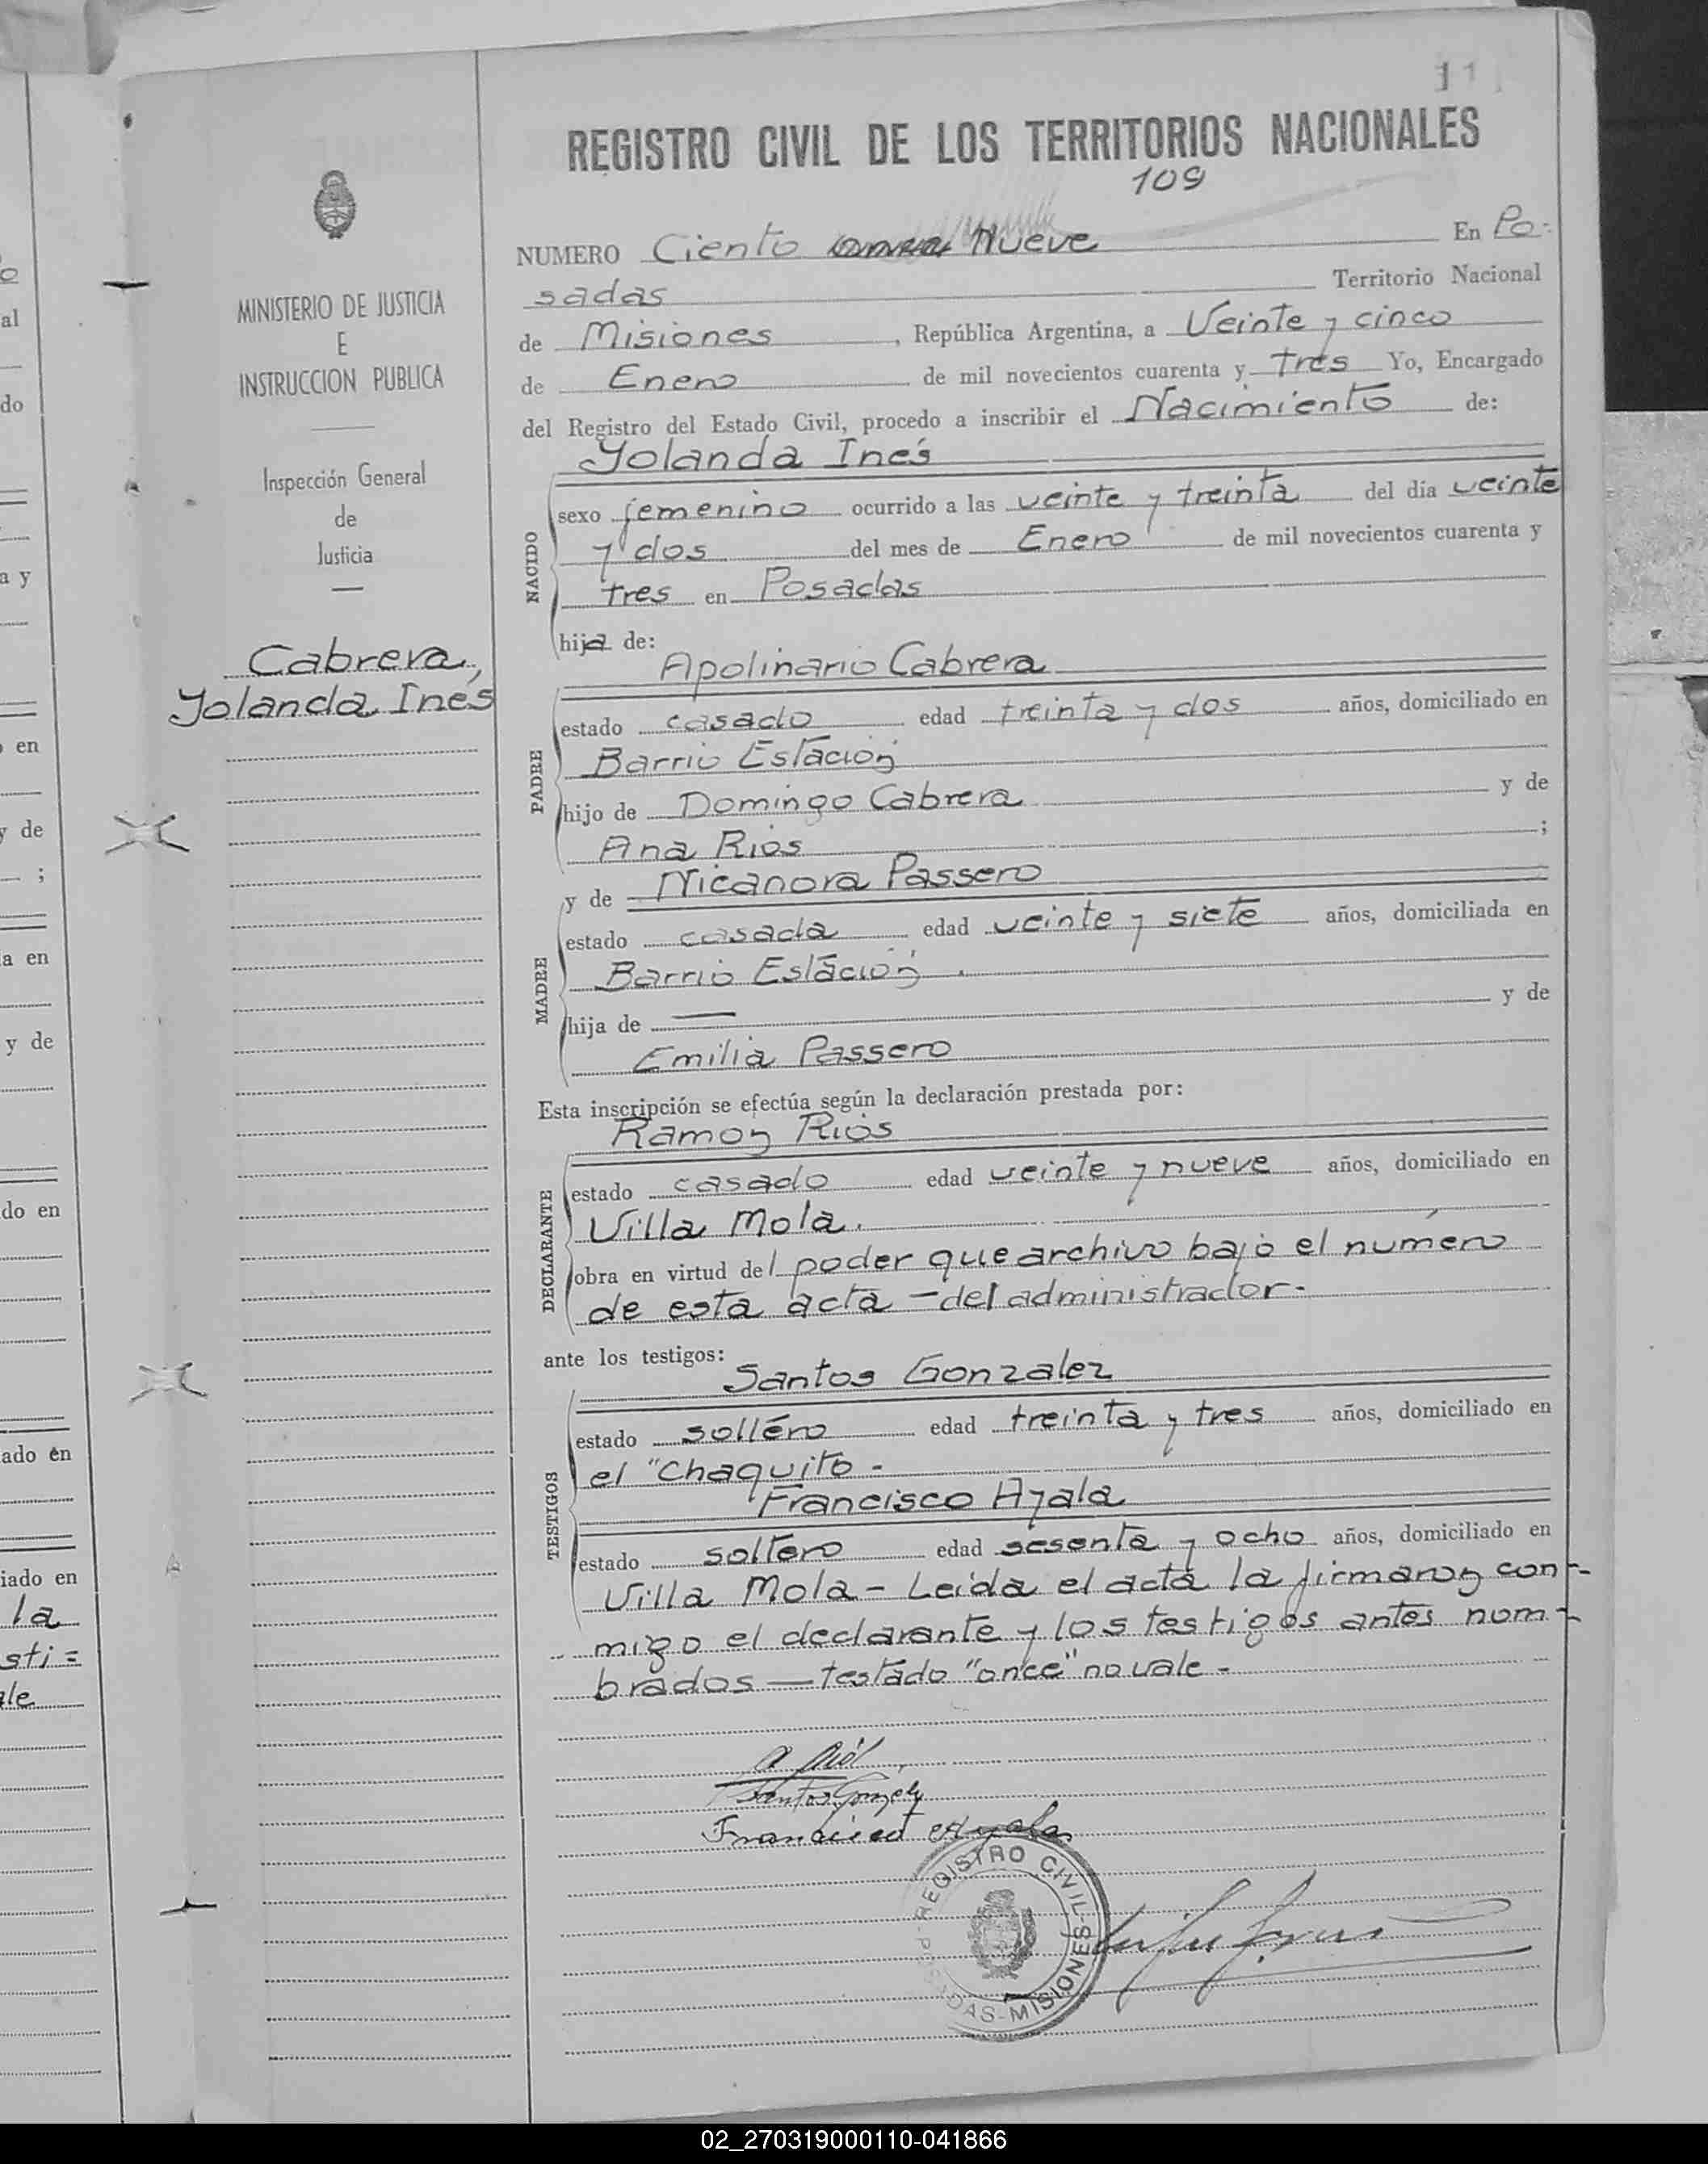 11
REGISTRO CIVIL DE LOS TERRITORIOS NACIONALES
109
NUMERO Ciento once Nueve En Po-
sadas Territorio Nacional
de Misiones, República Argentina, a Veinte y cinco
de Enero de mil novecientos cuarenta y tres Yo, Encargado
del Registro del Estado Civil, procedo a inscribir el Nacimiento de:
Yolanda Inés
NACIDO
sexo femenino ocurrido a las veinte y treinta del día veinte
y dos del mes de Enero de mil novecientos cuarenta y
tres en Posadas
hija de:
Apolinario Cabrera
PADRE
estado casado edad treinta y dos años, domiciliado en
Barrio Estación
hijo de Domingo Cabrera y de
Ana Rios ;
y de Nicanora Passero
MADRE
estado casada edad veinte y siete años, domiciliada en
Barrio Estación.
hija de — y de
Emilia Passero
Esta inscripción se efectúa según la declaración prestada por:
Ramon Rios
DECLARANTE
estado casado edad veinte y nueve años, domiciliado en
Villa Mola.
obra en virtud del poder que archivo bajo el número
de esta acta - del administrador.-
ante los testigos:
Santos Gonzalez
TESTIGOS
estado soltéro edad treinta y tres años, domiciliado en
el "Chaquito -
Francisco Ayala
estado soltero edad sesenta y ocho años, domiciliado en
Villa Mola - Leída el acta la firmaron con-
migo el declarante y los testigos antes nom-
brados — testado "once" no vale -
Santos Gonzalez
Francisco Ayala
REGISTRO CIVIL - MISIONES - POSADAS
MINISTERIO DE JUSTICIA
E
INSTRUCCION PUBLICA
Inspección General
de
Justicia
Cabrera,
Yolanda Inés
o
al
do
a y
o en
y de
;
a en
y de
do en
ado en
iado en
la
sti=
ale
02_270319000110-041866